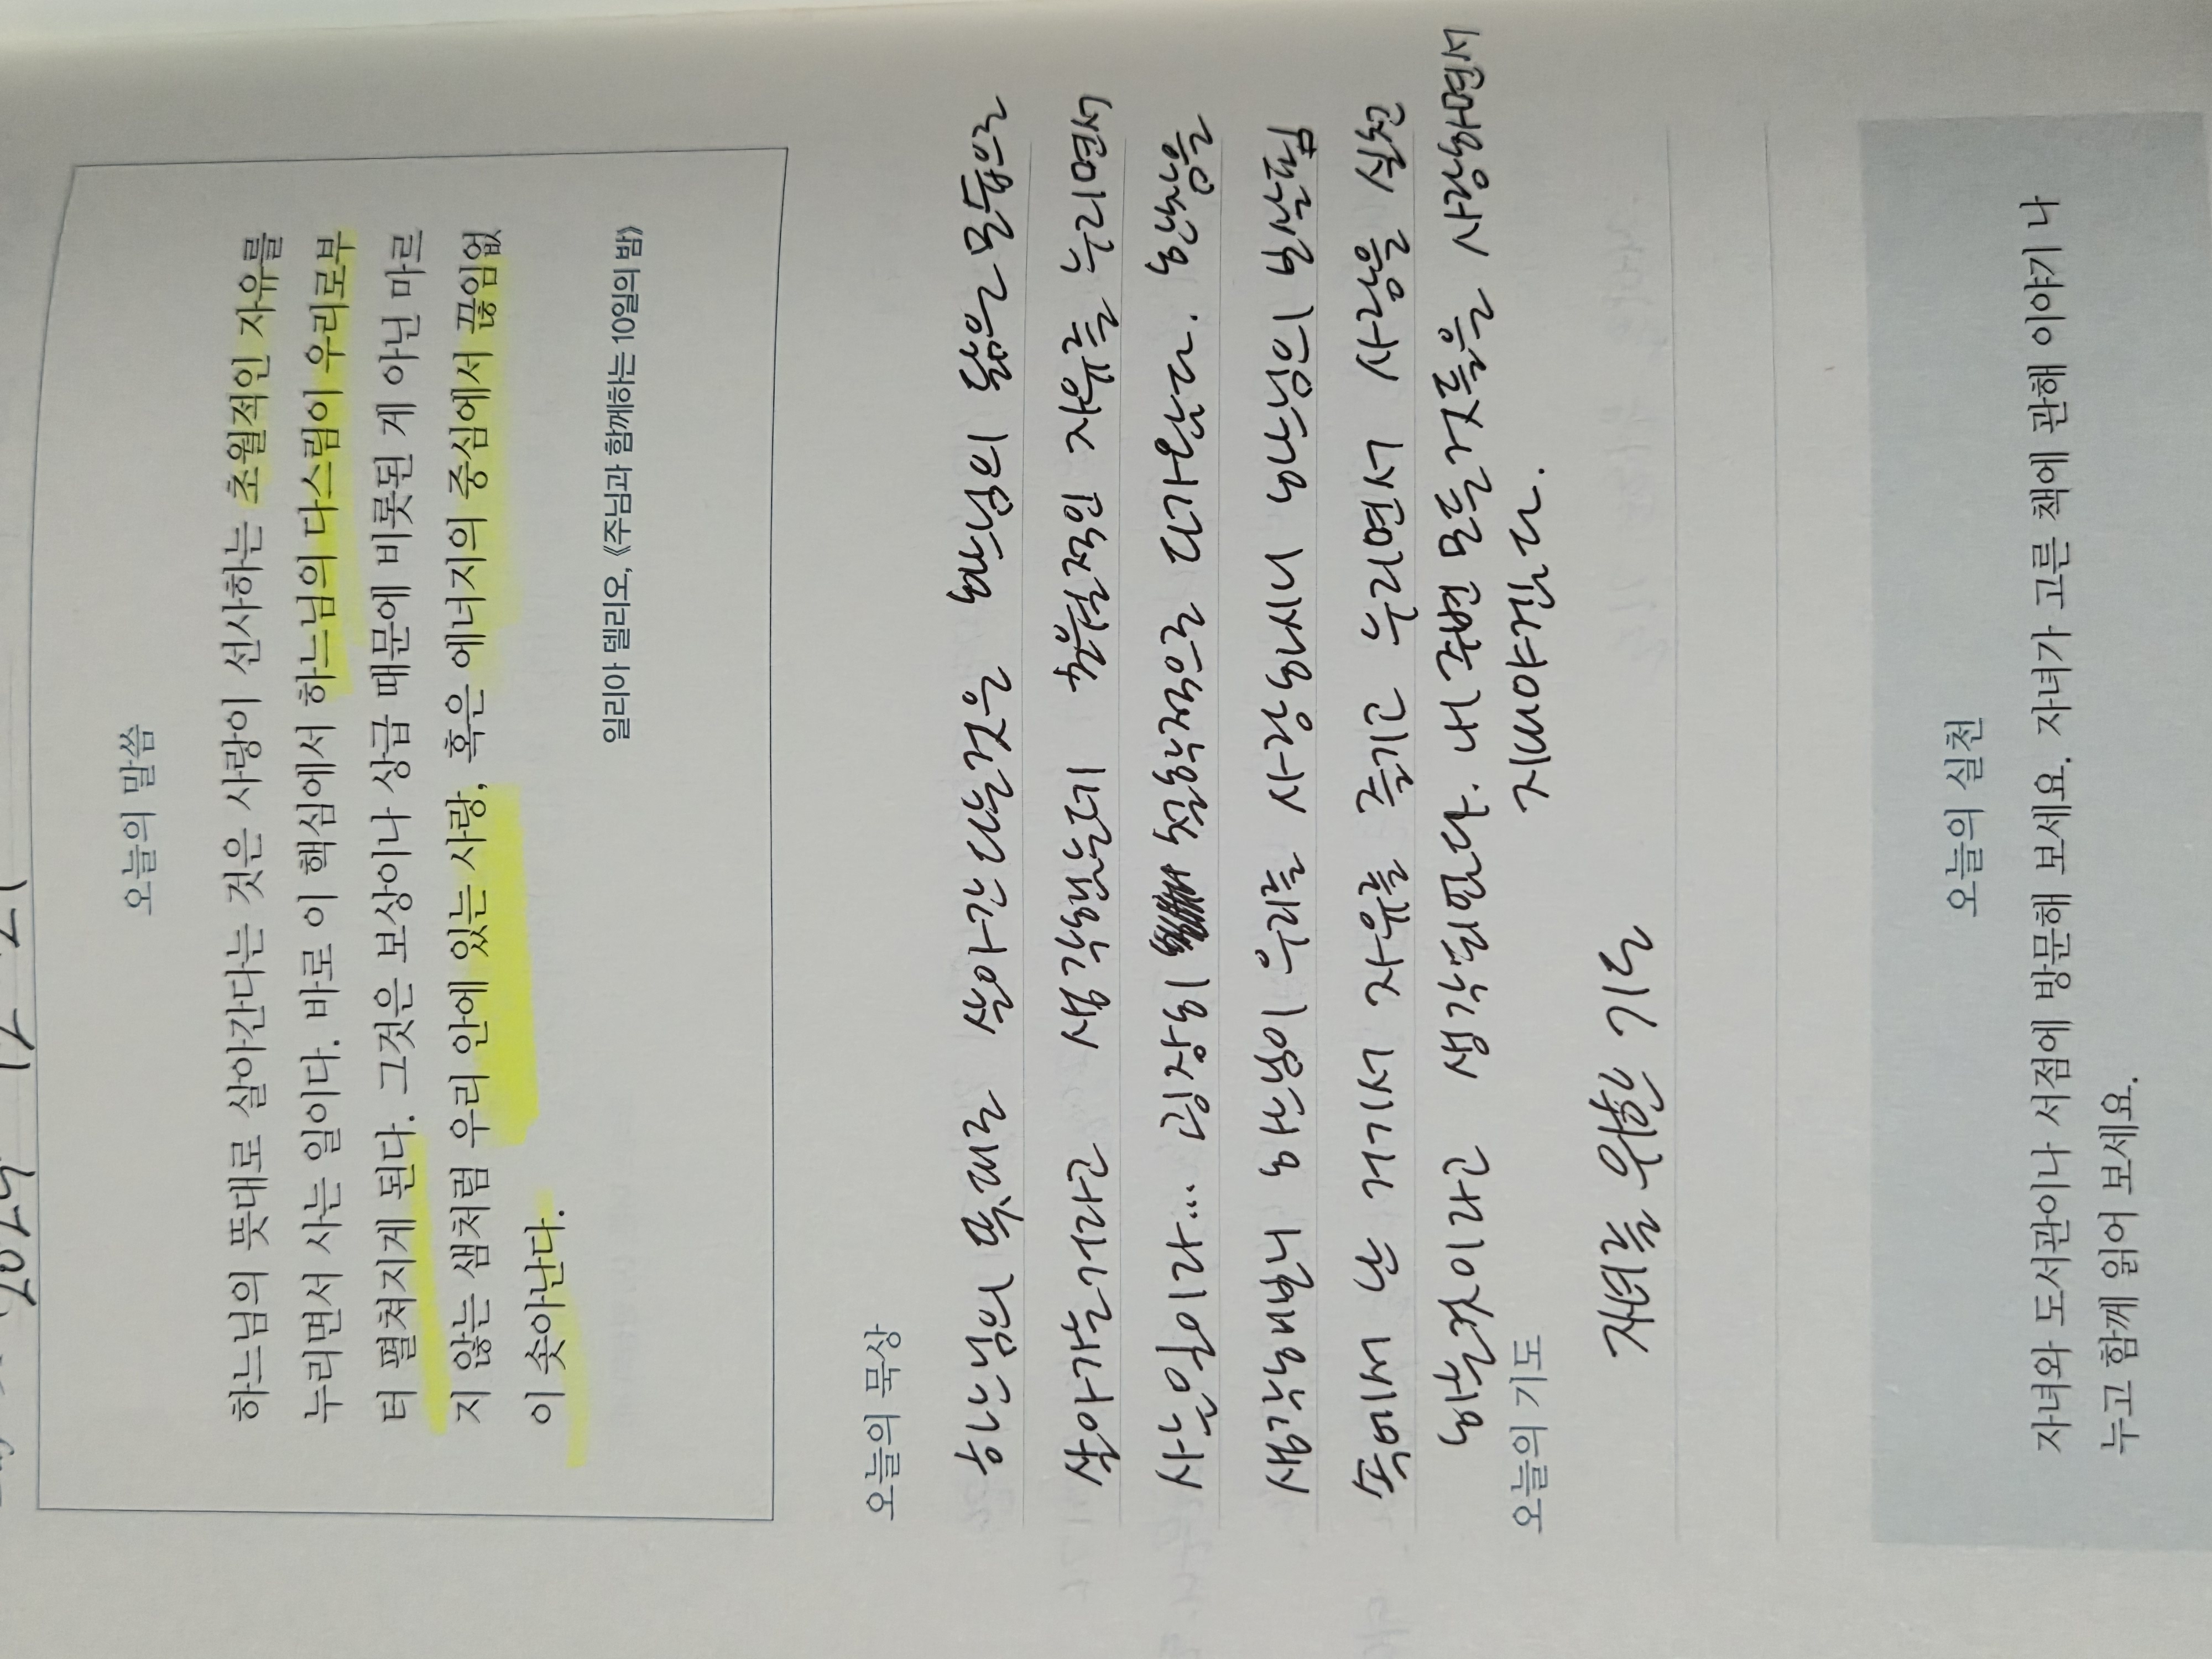 2024 12 21
오늘의 말씀
하느님의 뜻대로 살아간다는 것은 사랑이 선사하는 초월적인 자유를
누리면서 사는 일이다. 바로 이 핵심에서 하느님의 다스림이 우리로부
터 펼쳐지게 된다. 그것은 보상이나 상급 때문에 비롯된 게 아닌 마르
지 않는 샘처럼 우리 안에 있는 사랑, 혹은 에너지의 중심에서 끊임없
이 솟아난다.
일리아 델리오, 《주님과 함께하는 10일의 밤》
오늘의 묵상
하느님의 뜻대로 살아간다는것은 하느님의 닮은 모습으로
살아가는거라고 생각했는데 초월적인 자유를 누리면서
사는일이라... 굉장히 철학적으로 다가온다. 하지만
생각해보니 하느님이 우리를 사랑하시니 하느님이 베푸신
속에서 나는 거기서 자유를 즐기고 누리면서 사랑을 실천
하는것이라고 생각되된다. 내 주변 모든것들을 사랑하면서
지내야겠다.
오늘의 기도
자녀를 위한 기도
오늘의 실천
자녀와 도서관이나 서점에 방문해 보세요. 자녀가 고른 책에 관해 이야기 나
누고 함께 읽어 보세요.